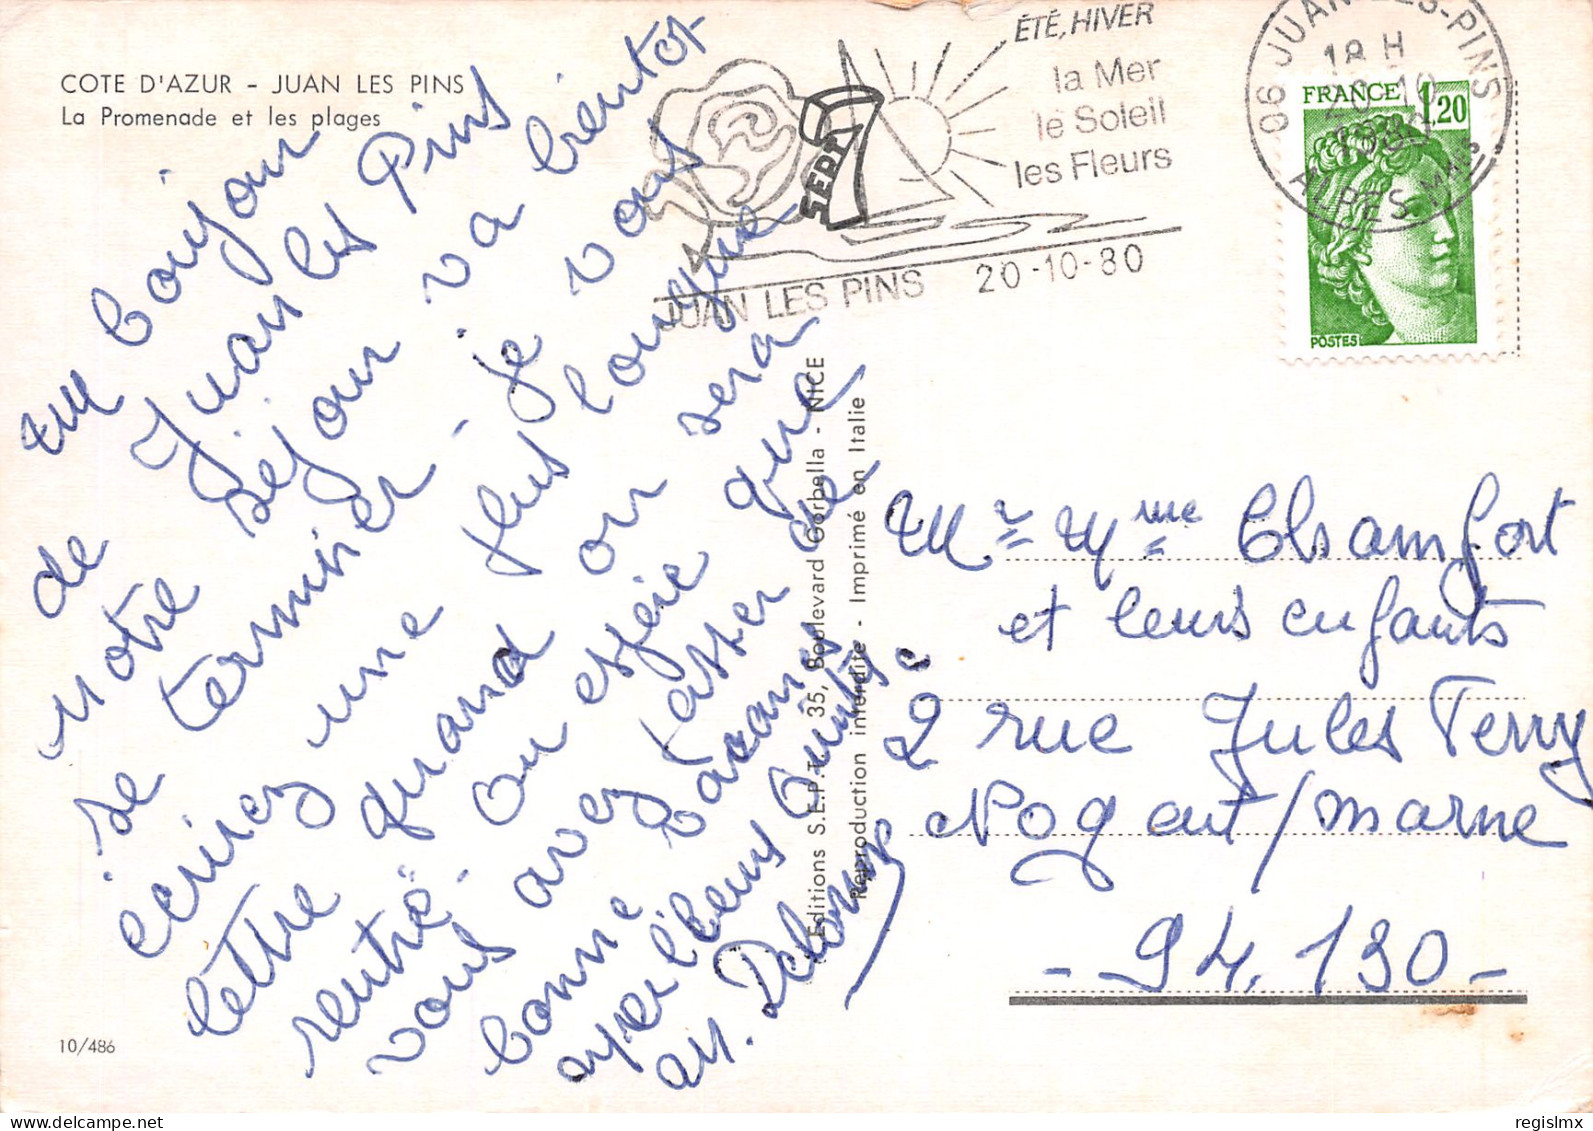 COTE D'AZUR - JUAN LES PINS
La Promenade et les plages
ÉTÉ, HIVER
la Mer
le Soleil
les Fleurs
SEPT
JUAN LES PINS 20-10-80
06 JUAN-LES-PINS
18 H
20-10
ALPES-MMES
FRANCE 1,20
POSTES
un bonjour
de Juan les Pins
notre séjour va bientot
se terminer - je vous
écrirez une plus longue
lettre quand on sera
rentré. On espère que
vous avez passer de
bonne vacances
ayer l'bons
M. Delorme
Editions S.E.P.T. 35, Boulevard Gorbella - NICE
Reproduction interdite - Imprimé en Italie
Mr Mme Chamfort
et leurs enfants
2 rue Jules Ferry
Nogent/marne
- 94.130 -
10/486
regislmx